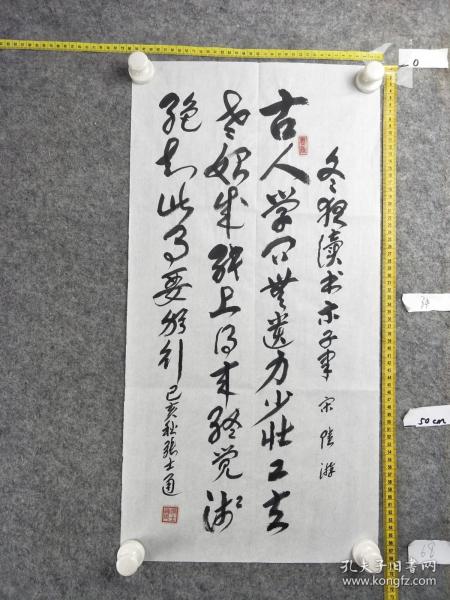 冬夜讀书示子聿 宋 陸游
古人学问無遗力少壮工夫
老始成纸上得来终觉浅
绝知此事要躬行 己亥秋張士通
0
34
50cm
68
孔夫子旧书网
www.kongfz.com